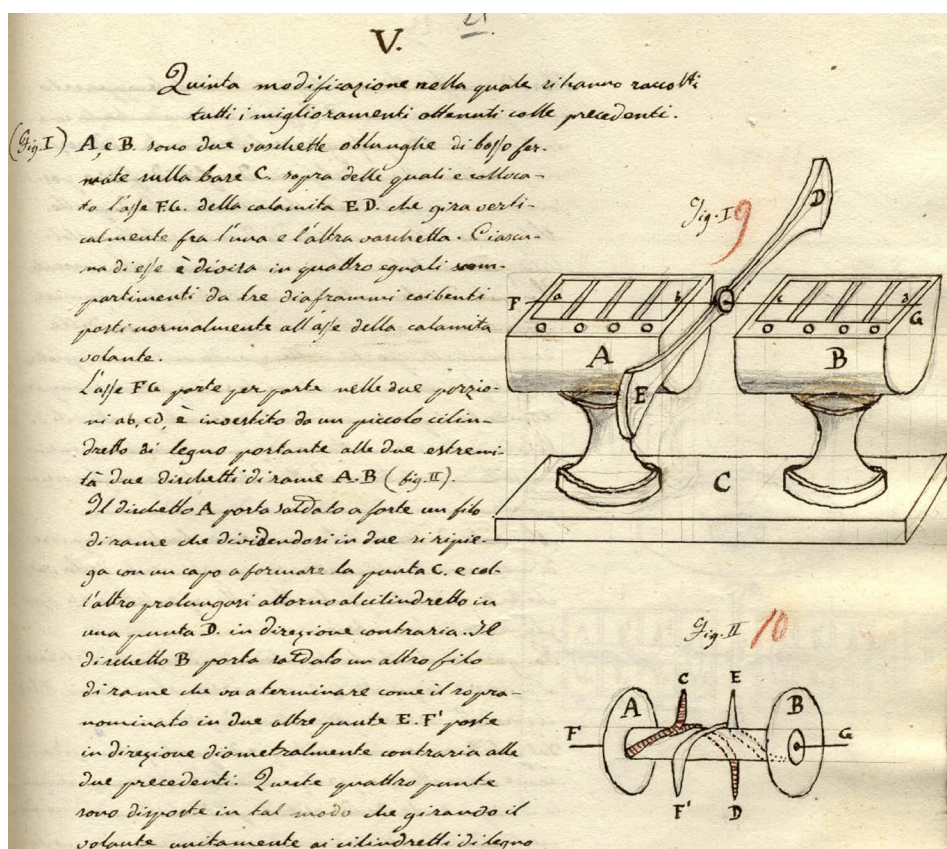 21
V.
Quinta modificazione nella quale si hanno raccolti
tutti i miglioramenti ottenuti colle precedenti.
(Fig. I) A, e B. sono due vaschette oblunghe di bosso fer-
mate sulla base C. sopra delle quali e colloca-
to l'asse F.G. della calamita E.D. che gira verti-
calmente fra l'una e l'altra vaschetta. Ciascu-
na di esse è divisa in quattro eguali scom-
partimenti da tre diaframmi coibenti
posti normalmente all'asse della calamita
volante.
L'asse FG parte per parte nelle due porzio-
ni ab, cd, è investito da un piccolo cilin-
dretto di legno portante alle due estremi-
tà due dischetti di rame A.B (fig. II).
Il dischetto A porta saldato a forte un filo
di rame che dividendosi in due si ripie-
ga con un capo a formare la punta C. e col-
l'altro prolungasi attorno al cilindretto in
una punta D. in direzione contraria. Il
dischetto B porta saldato un altro filo
di rame che va a terminare come il sopra-
nominato in due altre punte E. F' poste
in direzione diametralmente contraria alle
due precedenti. Queste quattro punte
sono disposte in tal modo che girando il
volante unitamente ai cilindretti di legno
Fig. I 9
D
F a b c d G
A B
E
C
Fig. II 10
C E
A B
F G
F' D